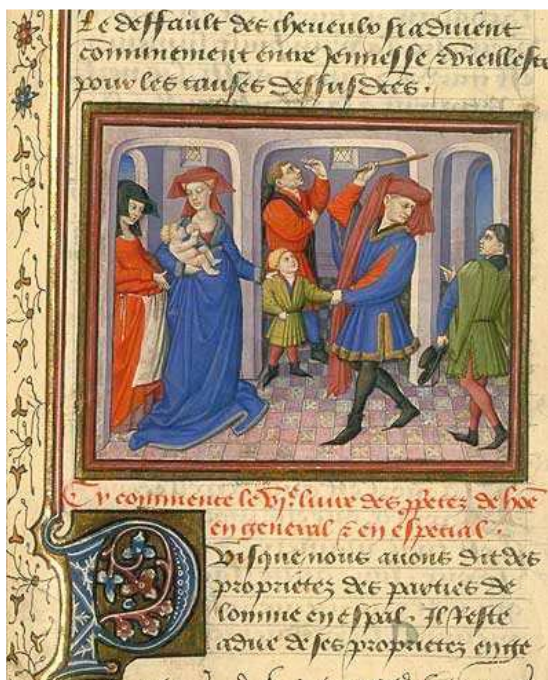 Le deffault des cheveulx si advient
communement entre Jennesse & vieillesse
pour les causes dessus dces .
Cy commence le vi.e livre des pptez de hoe
en general & en espécial .
Puisque nous avons dit des
proprietez des parties de
lomme en espal . Il reste
a dire de ses proprietez en ge